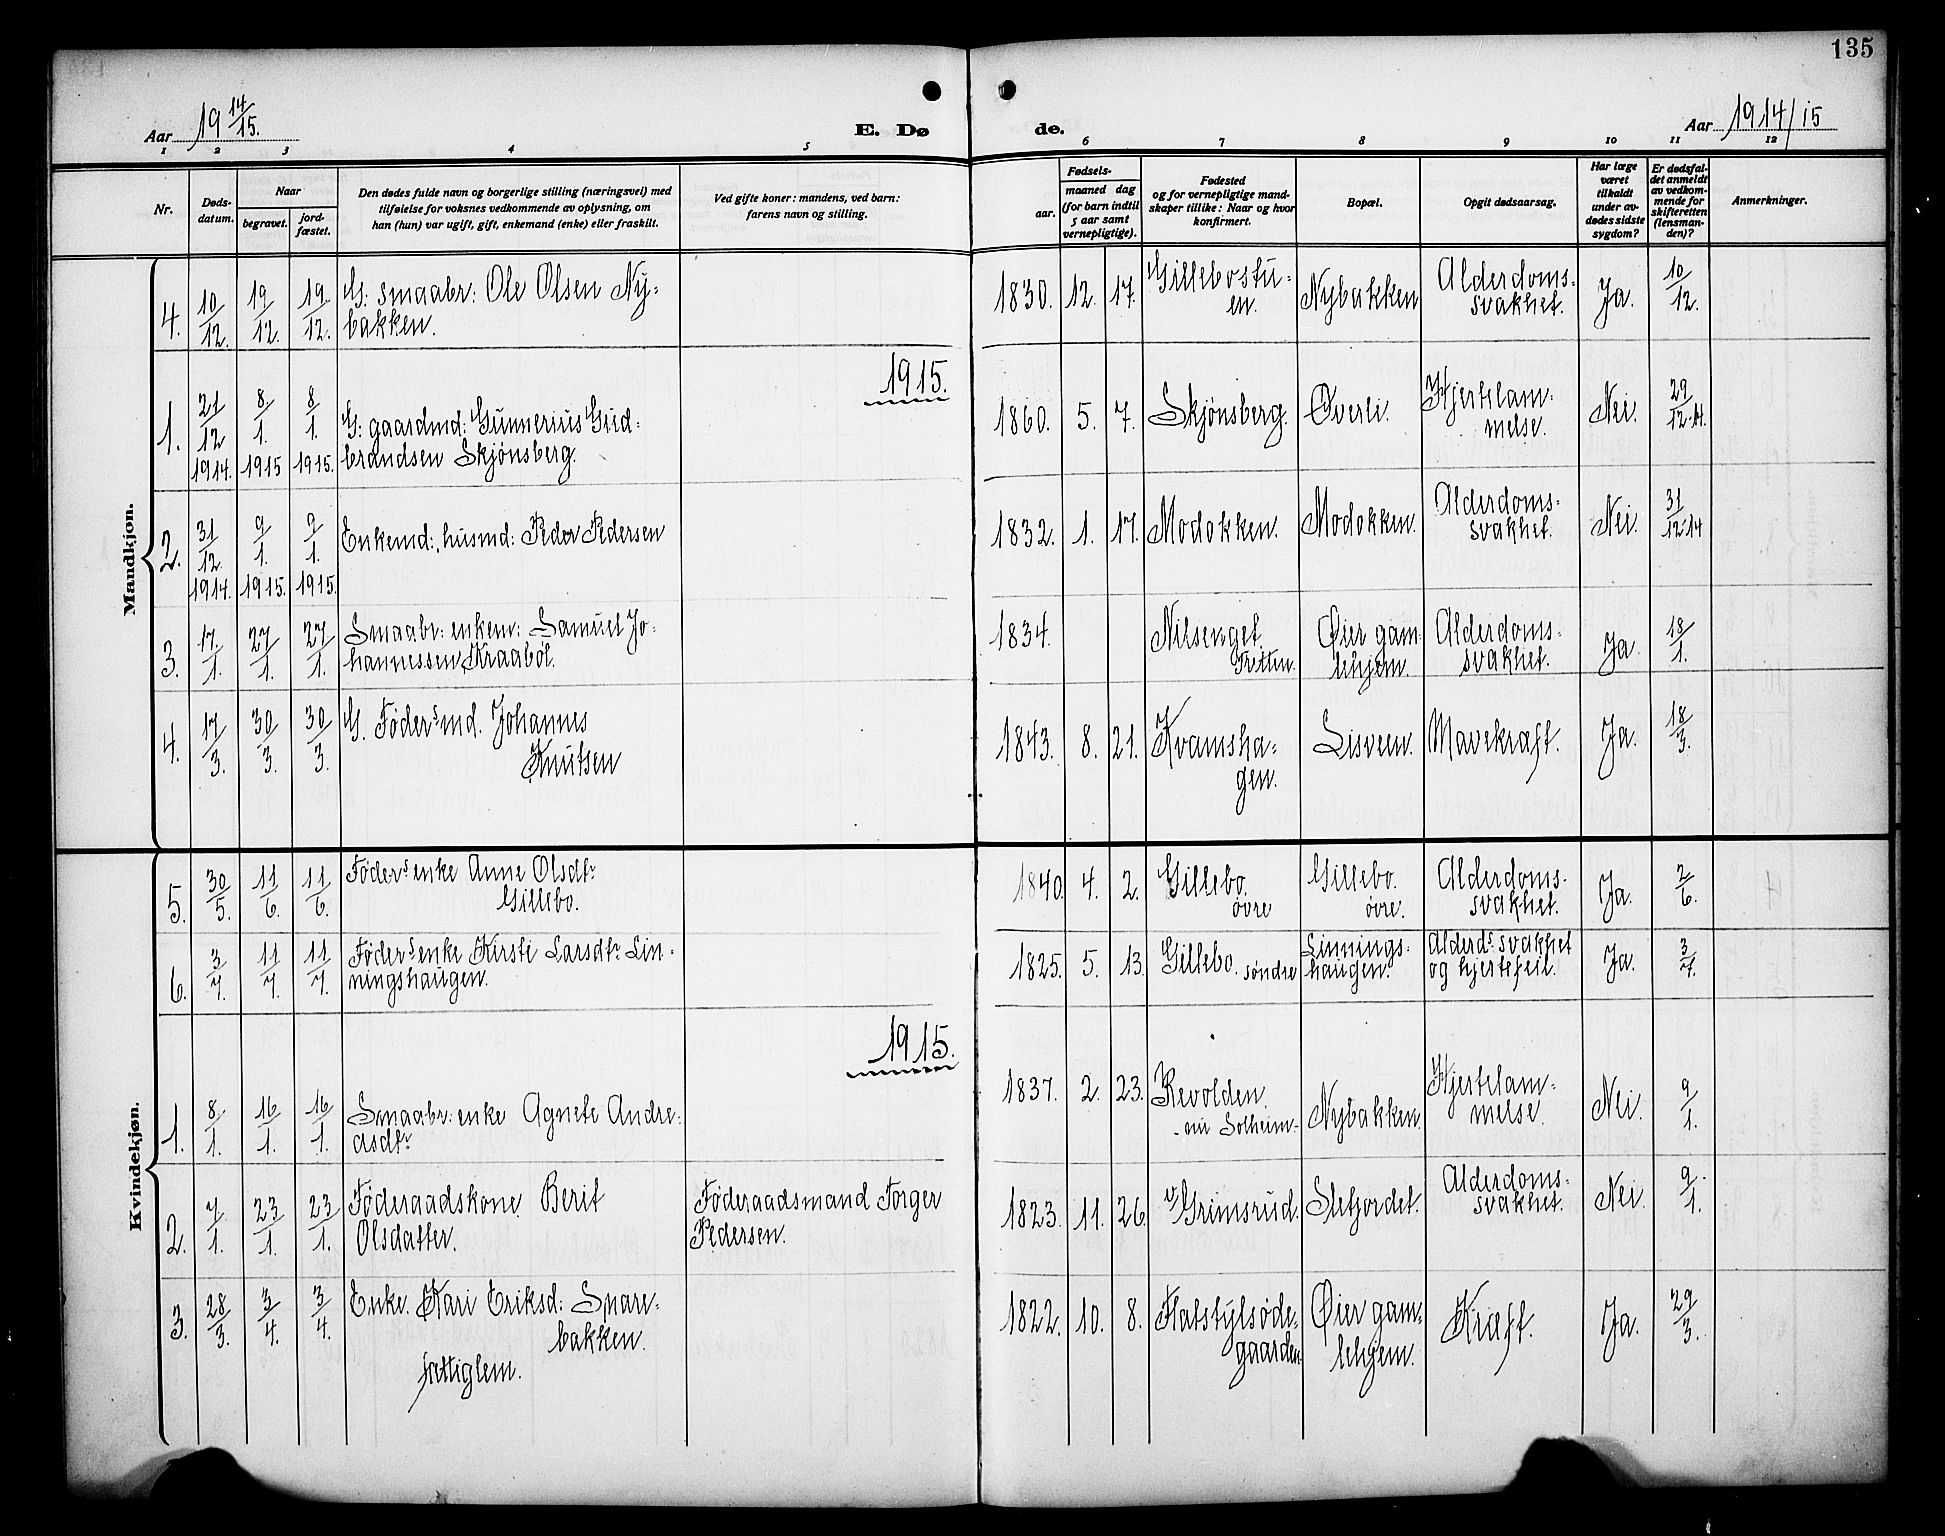 135
Aar 19 14/15.
E. Dø
de.
Aar 1914/15
1 2 3 4 5 6 7 8 9 10 11 12
Nr.
Døds-
datum.
Naar
begravet.
jord-
fæstet.
Den dødes fulde navn og borgerlige stilling (næringsvei) med
tilføielse for voksnes vedkommende av oplysning, om
han (hun) var ugift, gift, enkemand (enke) eller fraskilt.
Ved gifte koner: mandens, ved barn:
farens navn og stilling.
Fødsels-
aar.
maaned dag
(for barn indtil
5 aar samt
vernepligtige).
Fødested
og for vernepligtige mand-
skaper tillike: Naar og hvor
konfirmert.
Bopæl.
Opgit dødsaarsag.
Har læge
været
tilkaldt
under av-
dødes sidste
sygdom?
Er dødsfal-
det anmeldt
av vedkom-
mende for
skifteretten
(lensman-
den)?
Anmerkninger.
Mandkjøn.
4. 10/12. 19/12. 19/12. G: smaabr: Ole Olsen Ny-
bakken.
1830. 12. 17. Gillebostu-
en. Nybakken Alderdoms-
svakhet. Ja. 10/12.
1915.
1. 21/12 1914. 8/1. 1915 8/1. 1915. G: gaardmd: Gunnerius Gud-
brandsen Skjønsberg.
1860. 5. 7. Skjønsberg. Øverli. Hjertelam-
melse. Nei. 29/12-14.
2. 31/12 1914. 9/1. 1915. 9/1. 1915. Enkemd:, husmd: Peder Pedersen
1832. 1. 17. Modokken. Modokken. Alderdoms-
svakhet. Nei. 31/12-14
3. 17/1. 27/1. 27/1. Smaabr: enkem: Samuel Jo-
hannessen Kraabøl.
1834. Nilsenget
Tretten. Øier gam-
lehjem. Alderdoms-
svakhet. Ja. 18/1.
4. 17/3. 30/3. 30/3. G. Føders md. Johannes
Knutsen
1843. 8. 21. Kvamsha-
gen. Lisveen. Mavekraft. Ja. 18/3.
Kvindekjøn.
5. 30/5. 11/6. 11/6. Føders enke Anne Olsdtr
Gillebo.
1840. 4. 2. Gillebo.
øvre Gillebo.
øvre. Alderdoms-
svakhet. Ja. 2/6.
6. 3/7. 11/7. 11/7. Føders enke Kirsti Larsdtr Lin-
ningshaugen.
1825. 5. 13. Gillebo. søndre Linnings-
haugen. Alderds svakhet
og hjertefeil. Ja. 3/7.
1915.
1. 8/1. 16/1. 16/1. Smaabr: enke Agnete Andre-
asdtr
1837. 2. 23. Revolden
-nu Solheim- Nybakken. Hjertelam-
melse. Nei. 9/1.
2. 7/1. 23/1. 23/1. Føderaadskone Berit
Olsdatter.
Føderaadsmand Torger
Pedersen.
1823. 11. 26. Grimsrud. Slefjordet. Alderdoms-
svakhet. Nei. 9/1.
3. 28/3. 3/4. 3/4. Enke. Kari Eriksd: Snare-
bakken.
fattiglem.
1822. 10. 8. Flatstylsøde-
gaarden Øier gam-
lehjem. Kraft. Ja. 29/3.